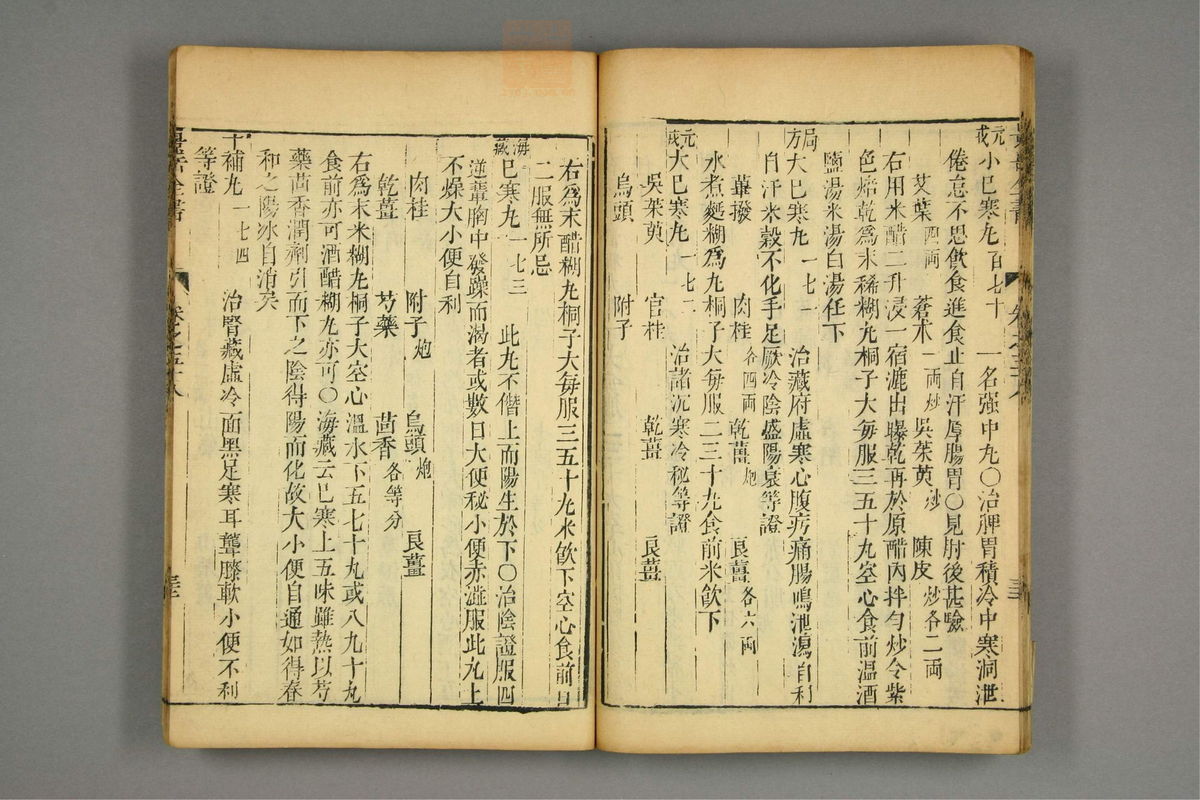 元戎小已寒丸百七十　一名强中丸〇治脾胃積冷中寒洞泄
倦怠不思飲食進食止自汗厚腸胃〇見肘後甚驗
艾葉四両　蒼术一両炒　吳茱萸炒　陳皮炒各二両
右用米醋二升浸一宿漉出曝乾再於原醋內拌勻炒令紫
色焙乾為末稀糊丸桐子大每服三五十丸空心食前溫酒
鹽湯米湯白湯任下
局方大已寒丸一七一　治藏府虛寒心腹疞痛腸鳴泄瀉自利
自汗米穀不化手足厥冷陰盛陽衰等證
蓽撥　肉桂各四両　乾薑炮　良薑各六両
水煮麪糊為丸桐子大每服二三十丸食前米飲下
元戎大已寒丸一七二　治諸沉寒冷秘等證
吳茱萸　官桂　乾薑　良薑
烏頭　附子
右為末醋糊丸桐子大每服三五十丸米飲下空心食前日
二服無所忌
海藏已寒丸一七三　此丸不僭上而陽生於下〇治陰證服四
逆輩胸中發躁而渴者或數日大便秘小便赤澁服此丸上
不燥大小便自利
肉桂　附子炮　烏頭炮　良薑
乾薑　芍藥　茴香各等分
右為末米糊丸桐子大空心溫水下五七十丸或八九十丸
食前亦可酒醋糊丸亦可〇海藏云已寒上五味雖熱以芍
藥茴香潤劑引而下之陰得陽而化故大小便自通如得春
和之陽冰自消矣
十補丸一七四　治腎藏虛冷面黑足寒耳聾膝軟小便不利
等證